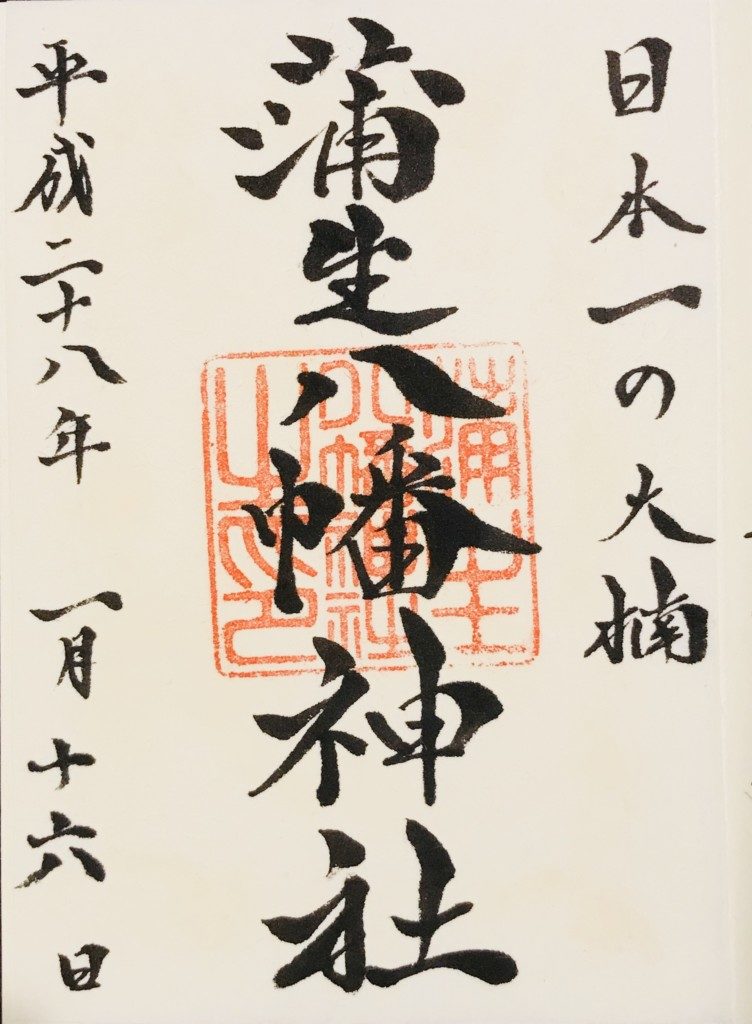 日本一の大楠
蒲生八幡神社
平成二十八年 一月十六日
蒲生
八幡神社
之印